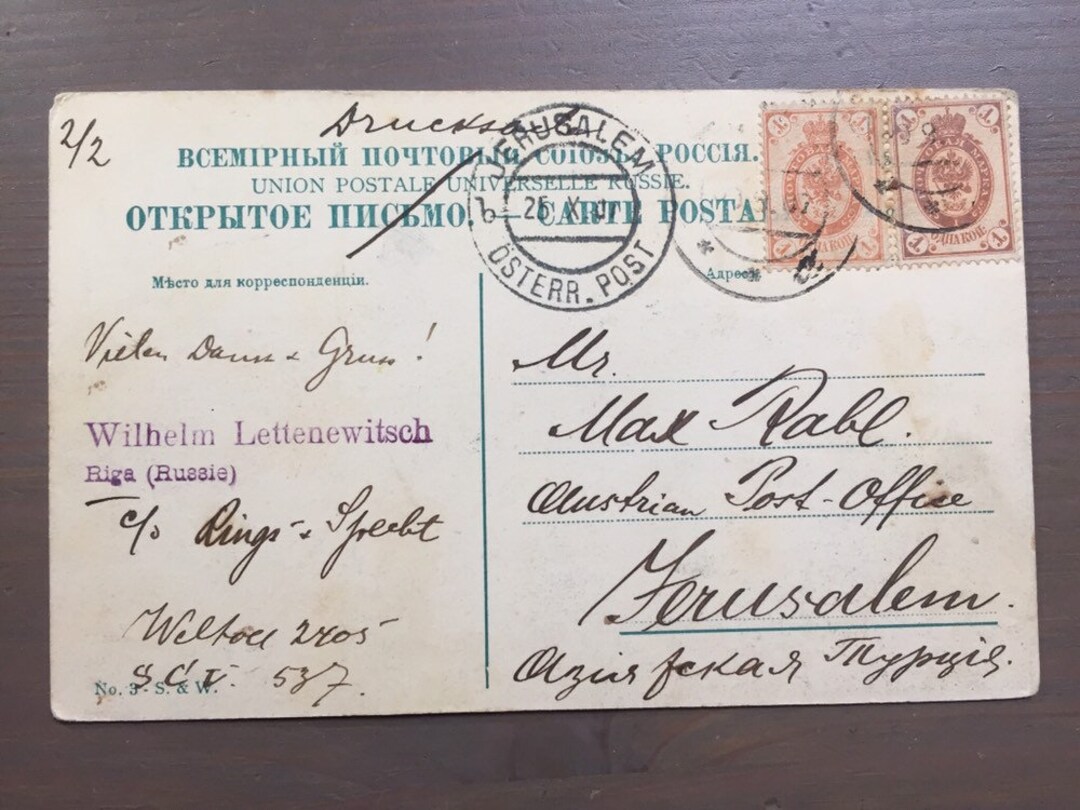 2/2
Drucksache
ВСЕМІРНЫЙ ПОЧТОВЫЙ СОЮЗЪ. РОССІЯ.
UNION POSTALE UNIVERSELLE RUSSIE.
ОТКРЫТОЕ ПИСЬМО. — CARTE POSTALE
JERUSALEM
25 X 07
ÖSTERR. POST
Мѣсто для корреспонденціи.
Адресъ
Vielen Dank + Gruss!
Wilhelm Lettenewitsch
Riga (Russie)
c/o Rings + Specht
Weltall 2405
S.C.I. 537.
No. 3 - S. & W.
Mr.
Max Rabl.
Austrian Post-Office
Jerusalem.
Азіятская Турція.